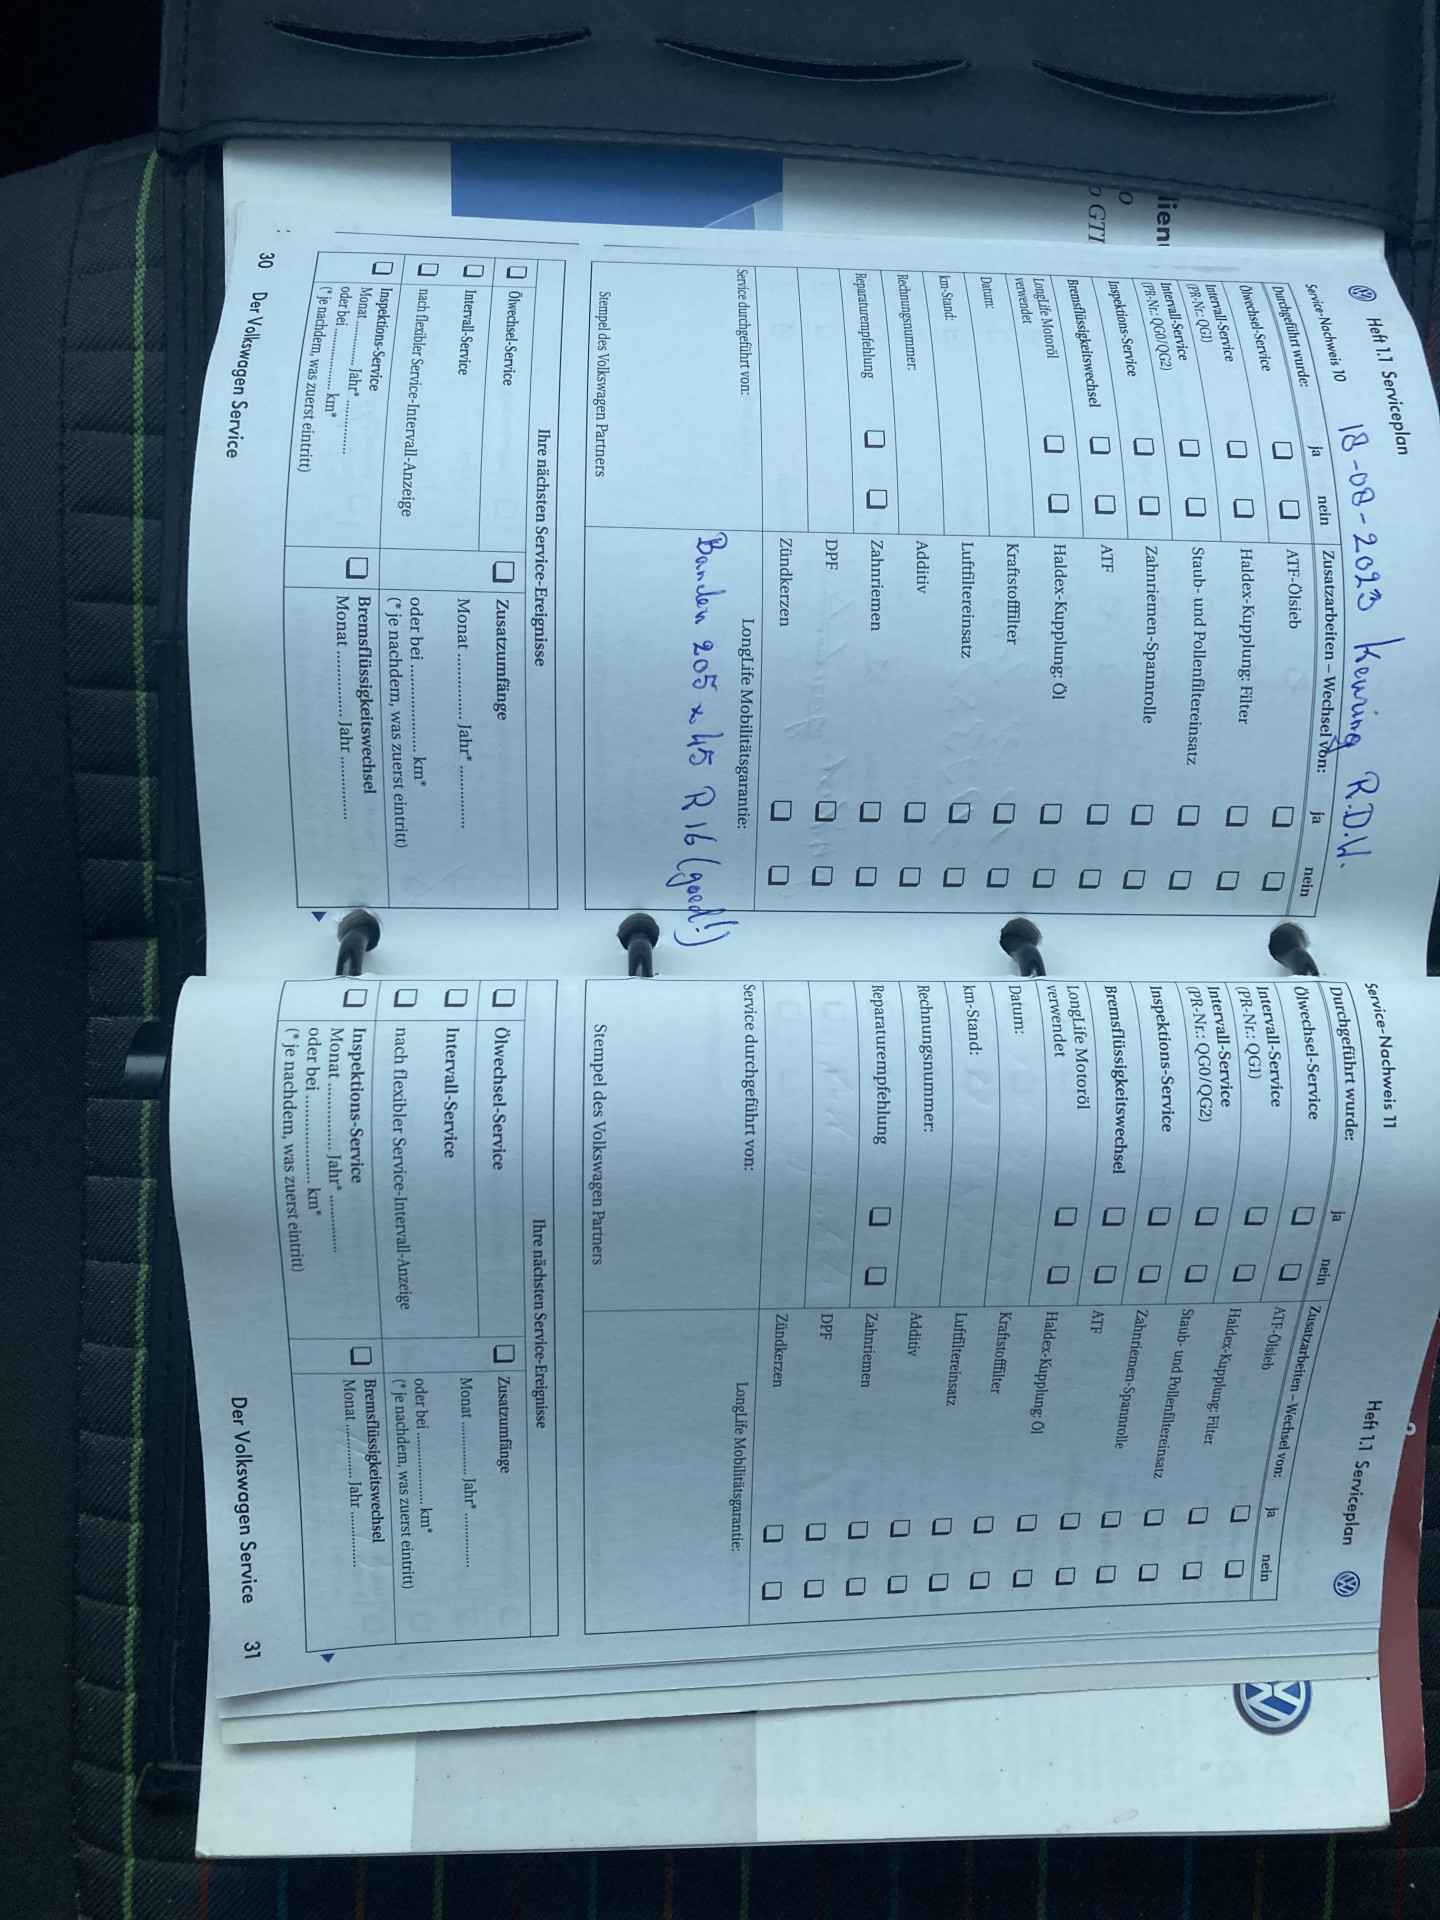 lien
o
o GTI
Heft 1.1 Serviceplan
18-08-2023 Keuring R.D.W.
Service-Nachweis 10
Durchgeführt wurde: ja nein
Ölwechsel-Service
Intervall-Service
(PR-Nr.: QG1)
Intervall-Service
(PR-Nr.: QG0/QG2)
Inspektions-Service
Bremsflüssigkeitswechsel
LongLife Motoröl
verwendet
Datum:
km-Stand:
Rechnungsnummer:
Reparaturempfehlung
Zusatzarbeiten – Wechsel von: ja nein
ATF-Ölsieb
Haldex-Kupplung: Filter
Staub- und Pollenfiltereinsatz
Zahnriemen-Spannrolle
ATF
Haldex-Kupplung: Öl
Kraftstofffilter
Luftfiltereinsatz
Additiv
Zahnriemen
DPF
Zündkerzen
Service durchgeführt von:
LongLife Mobilitätsgarantie:
Banden 205 x 45 R 16 (goed!)
Stempel des Volkswagen Partners
Ihre nächsten Service-Ereignisse
Ölwechsel-Service
Intervall-Service
nach flexibler Service-Intervall-Anzeige
Inspektions-Service
Monat ............. Jahr* .............
oder bei .................... km*
(* je nachdem, was zuerst eintritt)
Zusatzumfänge
Monat ............. Jahr* .............
oder bei .................... km*
(* je nachdem, was zuerst eintritt)
Bremsflüssigkeitswechsel
Monat ............. Jahr .............
30 Der Volkswagen Service
Service-Nachweis 11
Heft 1.1 Serviceplan
Durchgeführt wurde: ja nein
Ölwechsel-Service
Intervall-Service
(PR-Nr.: QG1)
Intervall-Service
(PR-Nr.: QG0/QG2)
Inspektions-Service
Bremsflüssigkeitswechsel
LongLife Motoröl
verwendet
Datum:
km-Stand:
Rechnungsnummer:
Reparaturempfehlung
Zusatzarbeiten – Wechsel von: ja nein
ATF-Ölsieb
Haldex-Kupplung: Filter
Staub- und Pollenfiltereinsatz
Zahnriemen-Spannrolle
ATF
Haldex-Kupplung: Öl
Kraftstofffilter
Luftfiltereinsatz
Additiv
Zahnriemen
DPF
Zündkerzen
Service durchgeführt von:
LongLife Mobilitätsgarantie:
Stempel des Volkswagen Partners
Ihre nächsten Service-Ereignisse
Ölwechsel-Service
Intervall-Service
nach flexibler Service-Intervall-Anzeige
Inspektions-Service
Monat ............. Jahr* .............
oder bei .................... km*
(* je nachdem, was zuerst eintritt)
Zusatzumfänge
Monat ............. Jahr* .............
oder bei .................... km*
(* je nachdem, was zuerst eintritt)
Bremsflüssigkeitswechsel
Monat ............. Jahr .............
Der Volkswagen Service 31